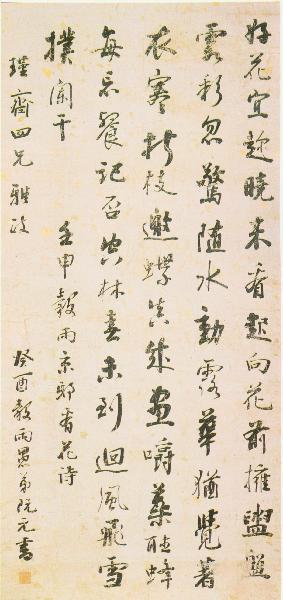 好花宜趁曉來看起向花前擁盥盤
雲彩忽驚隨水動露華猶覺著
衣寒折枝邀蝶真成畫嚼蕊聽蜂
每忘餐記否空林春未到迴風飛雪
撲闌干
壬申穀雨京邸看花詩
瑾齋四兄雅政
癸酉穀雨愚弟阮元書